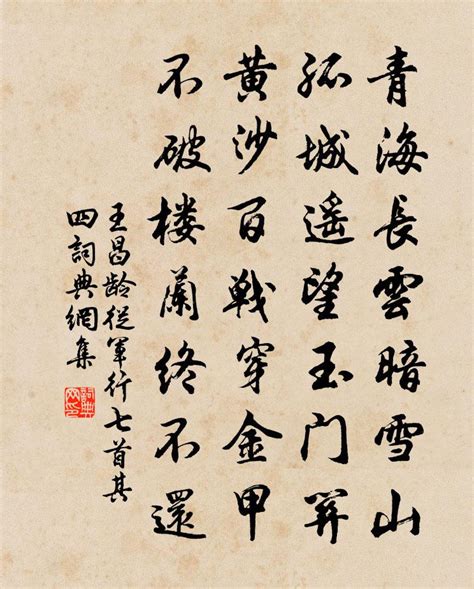 青海長雲暗雪山
孤城遥望玉门関
黄沙百戰穿金甲
不破楼蘭终不還
王昌龄從軍行七首其
四詞典網集